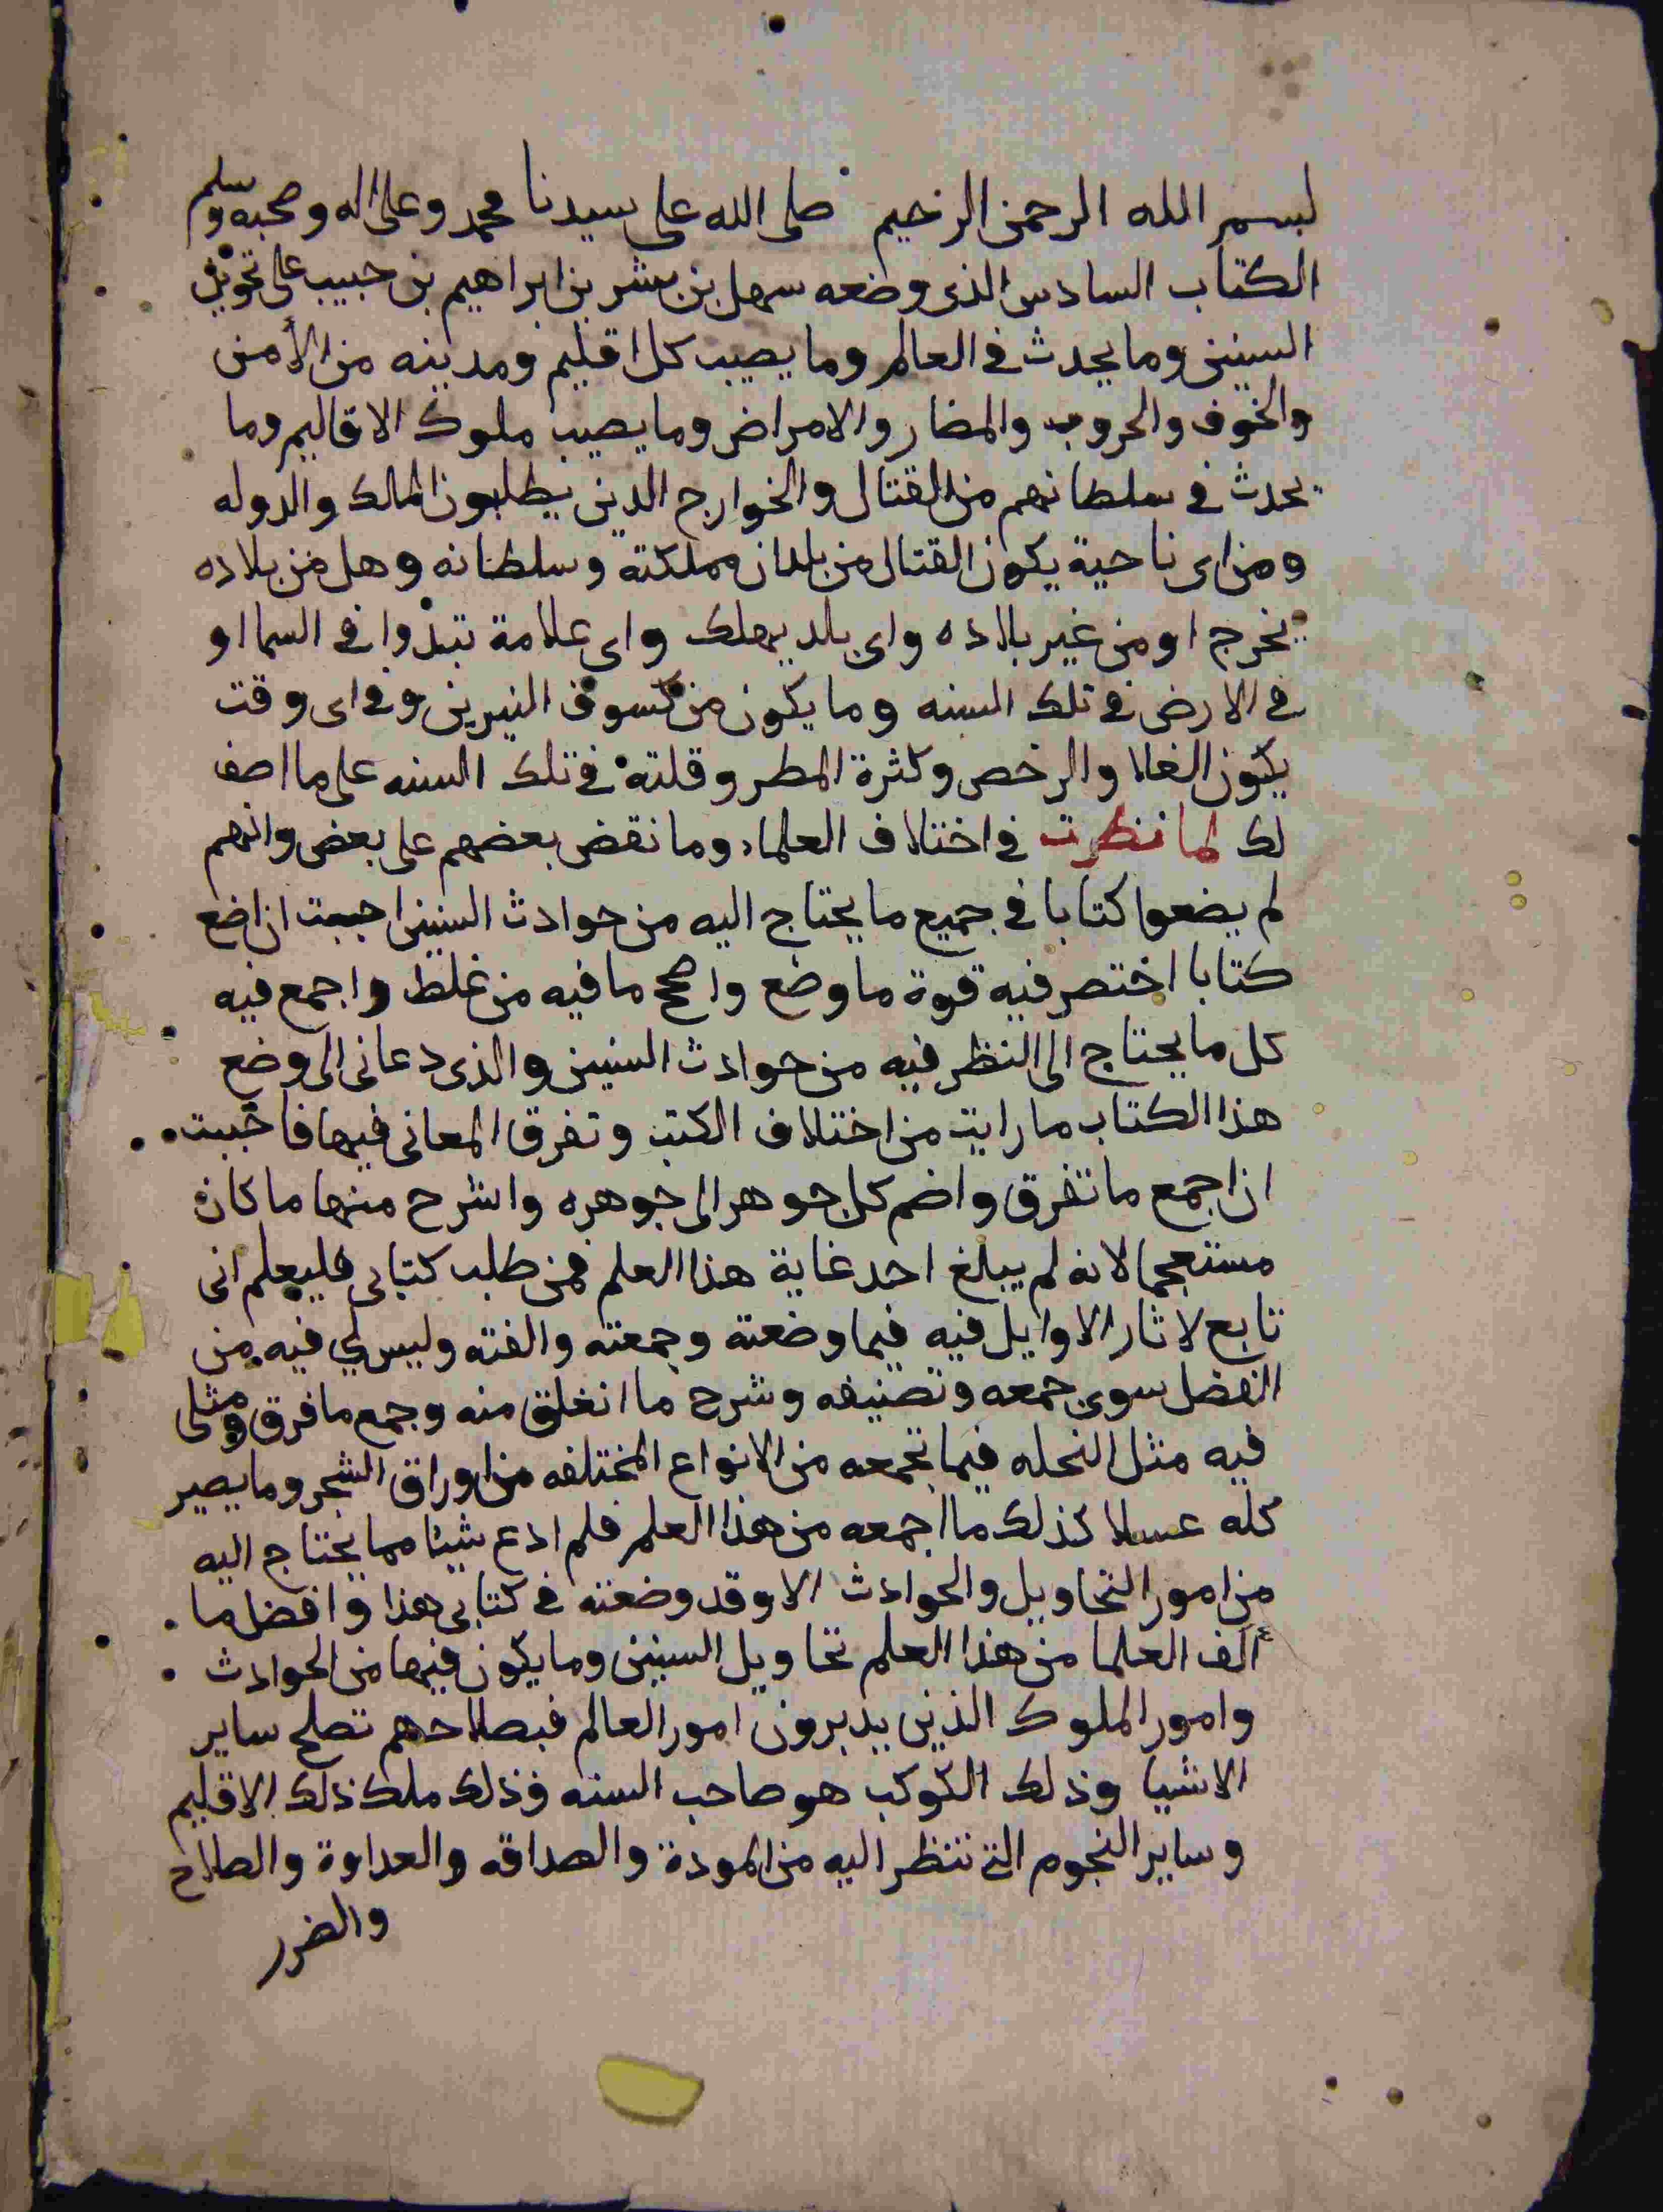 بسم الله الرحمن الرحيم صلى الله على سيدنا محمد وعلى اله وصحبه وسلم
الكتاب السادس الذى وضعه سهل بن بشر بن ابراهيم بن حبيب على تحويل
السنين وما يحدث فى العالم وما يصيب كل اقليم ومدينه من الأمن
والخوف والحروب والمضار والامراض وما يصيب ملوك الاقاليم وما
يحدث فى سلطانهم من القتال والخوارج الذين يطلبون الممالك والدوله
ومن اى ناحية يكون القتال من بلدان مملكته وسلطانه وهل من بلاده
يخرج او من غير بلاده واى بلد يهلك واى علامة تبدوا فى السما او
فى الارض فى تلك السنه وما يكون من كسوف النيرين وفى اى وقت
يكون الغلا والرخص وكثرة المطر وقلته فى تلك السنه على ما اصف
لك لما نظرت فى اختلاف العلماء وما نقض بعضهم على بعض وانهم
لم يضعوا كتابا فى جميع ما يحتاج اليه من حوادث السنين احببت ان اضع
كتابا اختصر فيه قوة ما وضع واصحح ما فيه من غلط واجمع فيه
كل ما يحتاج الى النظر فيه من حوادث السنين والذى دعانى الى وضع
هذا الكتاب ما رايت من اختلاف الكتب وتفرق المعانى فيها فاحببت
ان اجمع ما تفرق واضم كل جوهر الى جوهره واشرح منها ما كان
مستعجما لانه لم يبلغ احد غاية هذا العلم فمن طلب كتابى فليعلم انى
تابع لاثار الاوايل فيه فيما وضعته وجمعته والفته وليس لى فيه من
الفضل سوى جمعه وتصنيفه وشرح ما انغلق منه وجمع ما فرق ومثلى
فيه مثل النحله فيما تجمعه من الانواع المختلفه من اوراق الشجر وما يصير
كله عسلا كذلك ما اجمعه من هذا العلم فلم ادع شيئا مما يحتاج اليه
من امور التحاويل والحوادث الا وقد وضعته فى كتابى هذا وافضل ما
ألف العلما من هذا العلم تحاويل السنين وما يكون فيها من الحوادث
وامور الملوك الذين يدبرون امور العالم فبصلاحهم تصلح ساير
الاشيا وذلك الكوكب هو صاحب السنه وذلك ملك ذلك الاقليم
وساير النجوم التى تنظر اليه من المودة والصداقه والعداوة والصلاح
والضرر